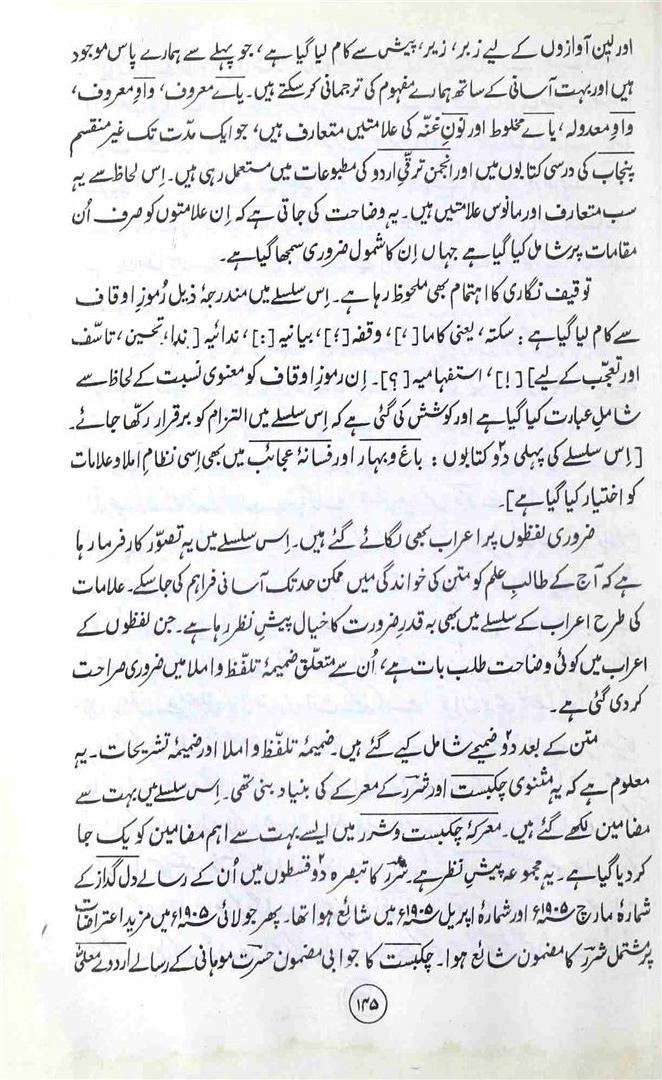 اور لین آوازوں کے لیے زبر، زیر، پیش سے کام لیا گیا ہے، جو پہلے سے ہمارے پاس موجود
ہیں اور بہت آسانی کے ساتھ ہمارے مفہوم کی ترجمانی کر سکتے ہیں۔ یاے معروف، واوِ معروف،
واوِ معدولہ، یاے مخلوط اور نونِ غنّہ کی علامتیں متعارف ہیں، جو ایک مدّت تک غیر منقسم
پنجاب کی درسی کتابوں میں اور انجمن ترقّیِ اردو کی مطبوعات میں مستعمل رہی ہیں۔ اِس لحاظ سے یہ
سب متعارف اور مانوس علامتیں ہیں۔ یہ وضاحت کی جاتی ہے کہ اِن علامتوں کو صرف اُن
مقامات پر شامل کیا گیا ہے جہاں اِن کا شمول ضروری سمجھا گیا ہے۔
توقیف نگاری کا اہتمام بھی ملحوظ رہا ہے۔ اِس سلسلے میں مندرجۂ ذیل رُموزِ اوقاف
سے کام لیا گیا ہے : سکتہ، یعنی کاما [،]، وقفہ [؛]، بیانیہ [:]، ندائیہ [ندا، تحسین، تاسّف
اور تعجّب کے لیے] [!]، استفہامیہ [؟]۔ اِن رموزِ اوقاف کو معنوی نسبت کے لحاظ سے
شاملِ عبارت کیا گیا ہے اور کوشش کی گئی ہے کہ اِس سلسلے میں التزام کو برقرار رکھّا جائے۔
[اِس سلسلے کی پہلی دو۲ کتابوں : باغ و بہار اور فسانۂ عجائب میں بھی اِسی نظامِ املا و علامات
کو اختیار کیا گیا ہے]۔
ضروری لفظوں پر اعراب بھی لگائے گئے ہیں۔ اِس سلسلے میں یہ تصوّر کارفرما رہا
ہے کہ آج کے طالبِ علم کو متن کی خواندگی میں ممکن حد تک آسانی فراہم کی جا سکے۔ علامات
کی طرح اعراب کے سلسلے میں بھی بہ قدرِ ضرورت کا خیال پیشِ نظر رہا ہے۔ جن لفظوں کے
اعراب میں کوئی وضاحت طلب بات ہے، اُن سے متعلّق ضمیمۂ تلفّظ و املا میں ضروری صراحت
کر دی گئی ہے۔
متن کے بعد دو۲ ضمیمے شامل کیے گئے ہیں۔ ضمیمۂ تلفّظ و املا اور ضمیمۂ تشریحات۔ یہ
معلوم ہے کہ یہ مثنوی چکبست اور شررؔ کے معرکے کی بنیاد بنی تھی۔ اِس سلسلے میں بہت سے
مضامین لکھے گئے ہیں۔ معرکۂ چکبست و شرر میں ایسے بہت سے اہم مضامین کو یک جا
کر دیا گیا ہے۔ یہ مجموعہ پیشِ نظر ہے۔ شررؔ کا تبصرہ دو۲ قسطوں میں اُن کے رسالے دل گداز کے
شمارۂ مارچ ۱۹۰۵ء اور شمارۂ اپریل ۱۹۰۵ء میں شائع ہوا تھا۔ پھر جولائی ۱۹۰۵ء میں مزید اعترافات
پر مشتمل شررؔ کا مضمون شائع ہوا۔ چکبست کا جوابی مضمون حسرت موہانی کے رسالے اردوے معلّیٰ
۱۴۵